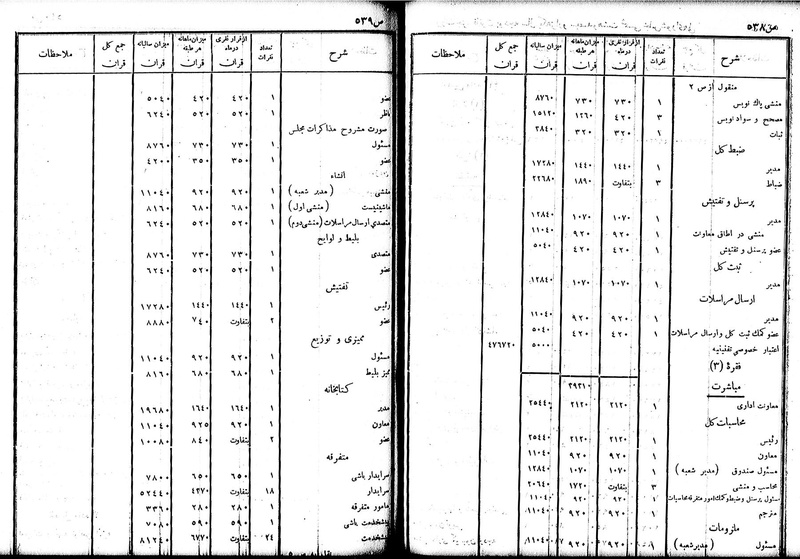 ص ۵۳۸
شرح | تعداد نفرات | از قرار نفری درماه قران | میزان ماهانه هر طبقه قران | میزان سالیانه قران | جمع کل قران | ملاحظات
منقول از ص ۲
منشی پاك نویس ۱ ۷۳۰ ۷۳۰ ۸۷۶۰
مصحح و سواد نویس ۳ ۴۲۰ ۱۲۶۰ ۱۵۱۲۰
ثبات ۱ ۳۲۰ ۳۲۰ ۳۸۴۰
ضبط کل
مدیر ۱ ۱۴۴۰ ۱۴۴۰ ۱۷۲۸۰
ضباط ۳ بتفاوت ۱۸۹۰ ۲۲۶۸۰
پرسنل و تفتیش
مدیر ۱ ۱۰۷۰ ۱۰۷۰ ۱۲۸۴۰
منشی در اطاق معاونت ۱ ۹۲۰ ۹۲۰ ۱۱۰۴۰
عضو پرسنل و تفتیش ۱ ۴۲۰ ۴۲۰ ۵۰۴۰
ثبت کل
مدیر ۱ ۱۰۷۰ ۱۰۷۰ ۱۲۸۴۰
ارسال مراسلات
مدیر ۱ ۹۲۰ ۹۲۰ ۱۱۰۴۰
عضو کمك ثبت کل و ارسال مراسلات ۱ ۴۲۰ ۴۲۰ ۵۰۴۰
اعتبار خصوصی تقنینیه ۵۰۰۰ ۴۷۶۷۲۰
فقرهٔ (۳)
مباشرت ۳۹۳۱۰
معاونت اداری ۱ ۲۱۲۰ ۲۱۲۰ ۲۵۴۴۰
محاسبات کل
رئیس ۱ ۲۱۲۰ ۲۱۲۰ ۲۵۴۴۰
معاون ۱ ۹۲۰ ۹۲۰ ۱۱۰۴۰
مسئول صندوق (مدیر شعبه) ۱ ۱۰۷۰ ۱۰۷۰ ۱۲۸۴۰
محاسب و منشی ۳ بتفاوت ۱۷۲۰ ۲۰۶۴۰
مسئول پرسنل و ضبط و کمك امور متفرقه محاسبات ۱ ۹۲۰ ۹۲۰ ۱۱۰۴۰
مترجم ۱ ۹۲۰ ۹۲۰ ۱۱۰۴۰
ملزومات
مسئول (مدیر شعبه) ۱ ۹۲۰ ۹۲۰ ۱۱۰۴۰
ص ۵۳۹
شرح | تعداد نفرات | از قرار نفری درماه قران | میزان ماهانه هر طبقه قران | میزان سالیانه قران | جمع کل قران | ملاحظات
عضو ۱ ۴۲۰ ۴۲۰ ۵۰۴۰
ناظر ۱ ۵۲۰ ۵۲۰ ۶۲۴۰
صورت مشروح مذاکرات مجلس
مسئول ۱ ۷۳۰ ۷۳۰ ۸۷۶۰
عضو ۱ ۳۵۰ ۳۵۰ ۴۲۰۰
انشاء
منشی (مدیر شعبه) ۱ ۹۲۰ ۹۲۰ ۱۱۰۴۰
ماشینیست (منشی اول) ۱ ۶۸۰ ۶۸۰ ۸۱۶۰
متصدی ارسال مراسلات (منشی دوم) ۱ ۵۲۰ ۵۲۰ ۶۲۴۰
بلیط و لوایح
متصدی ۱ ۷۳۰ ۷۳۰ ۸۷۶۰
عضو ۱ ۵۲۰ ۵۲۰ ۶۲۴۰
تفتیش
رئیس ۱ ۱۴۴۰ ۱۴۴۰ ۱۷۲۸۰
عضو ۲ بتفاوت ۷۴۰ ۸۸۸۰
ممیزی و توزیع
مسئول ۱ ۹۲۰ ۹۲۰ ۱۱۰۴۰
ممیز بلیط ۱ ۶۸۰ ۶۸۰ ۸۱۶۰
کتابخانه
مدیر ۱ ۱۶۴۰ ۱۶۴۰ ۱۹۶۸۰
معاون ۱ ۹۲۰ ۹۲۵ ۱۱۰۴۰
عضو ۲ بتفاوت ۸۴۰ ۱۰۰۸۰
متفرقه
سرایدار باشی ۱ ۶۵۰ ۶۵۰ ۷۸۰۰
سرایدار ۱۸ بتفاوت ۴۳۷۰ ۵۲۴۴۰
مامور متفرقه ۱ ۲۸۰ ۲۸۰ ۳۳۶۰
پیشخدمت باشی ۱ ۵۹۰ ۵۹۰ ۷۰۸۰
پیشخدمت ۲۴ بتفاوت ۶۷۷۰ ۸۱۲۴۰